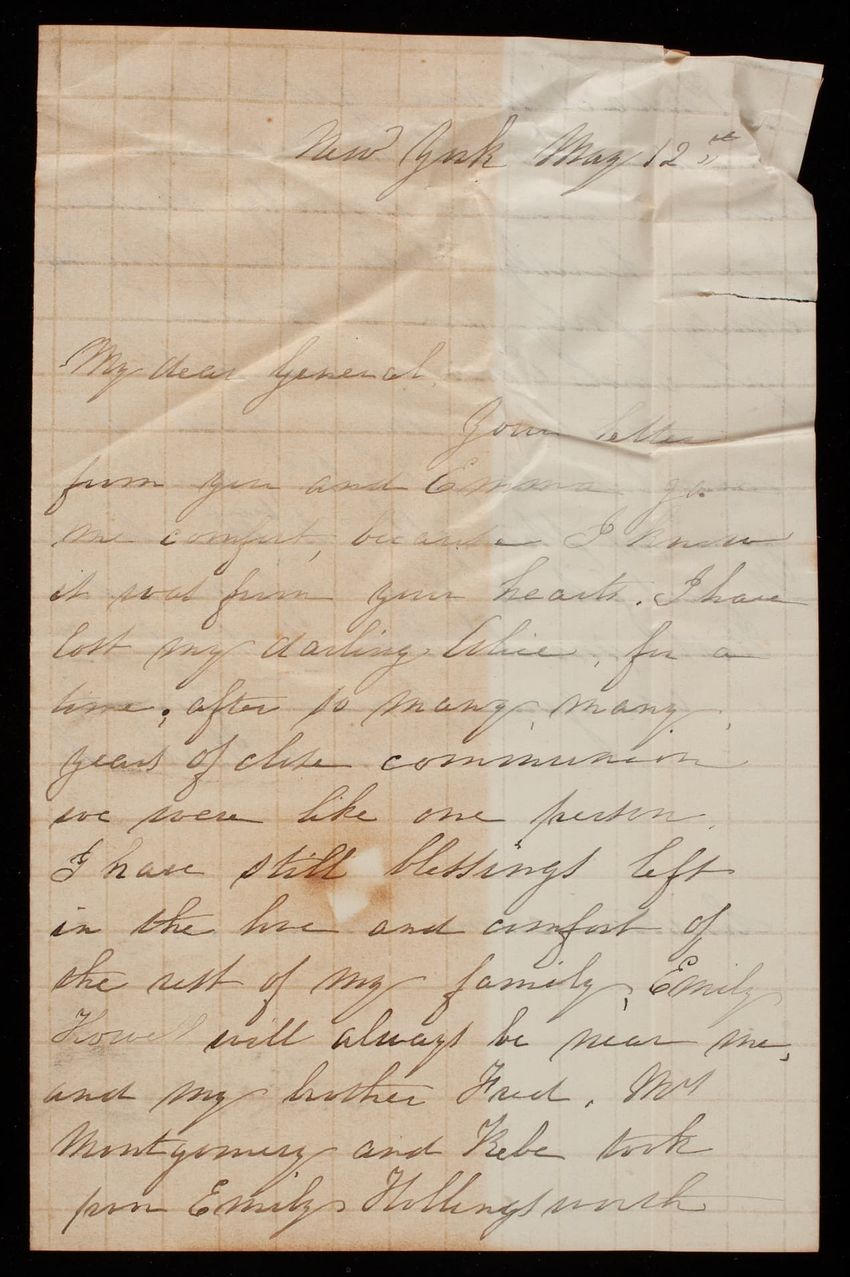 New York May 12th
My dear General.
Your letter
from you and Emma ga
me comfort, because I knew
it was from your hearts. I have
lost my darling Alice, for a
time; after so many, many,
years of close communion
we were like one person.
I have still blessings left
in the love and comfort of
the rest of my family, Emily
Howell will always be near me,
and my brother Fred. Mrs
Montgomery and Bebe took
poor Emily Hollingsworth